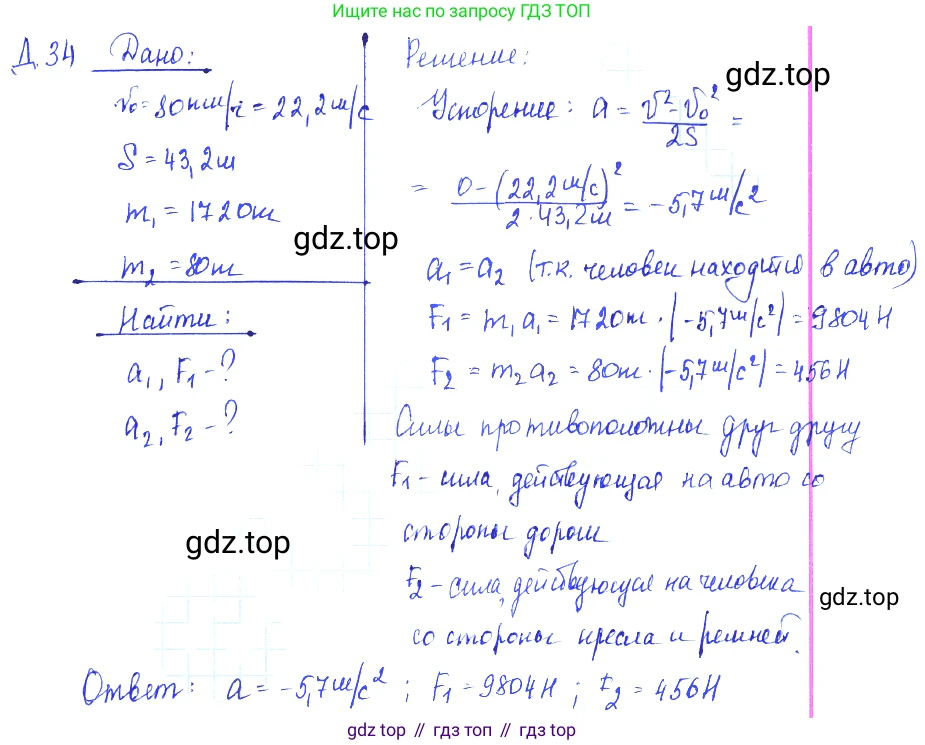 Ищите нас по запросу ГДЗ ТОП
Д.34 Дано:
v₀ = 80 км/ч = 22,2 м/с
S = 43,2 м
m₁ = 1720 кг
gdz.top
m₂ = 80 кг
Найти:
a₁, F₁ - ?
a₂, F₂ - ?
gdz.top
Решение:
gdz.top
Ускорение: a = (v² - v₀²)/2S =
= (0 - (22,2 м/с)²)/(2 · 43,2 м) = -5,7 м/с²
a₁ = a₂ (т.к. человек находится в авто)
F₁ = m₁a₁ = 1720 кг · |-5,7 м/с²| = 9804 Н
F₂ = m₂a₂ = 80 кг · |-5,7 м/с²| = 456 Н
Силы противоположны друг другу
F₁ - сила, действующая на авто со
стороны дороги
F₂ - сила, действующая на человека
gdz.top
со стороны кресла и ремней.
Ответ: a = -5,7 м/с²; F₁ = 9804 Н; F₂ = 456 Н
gdz top // гдз топ // gdz top